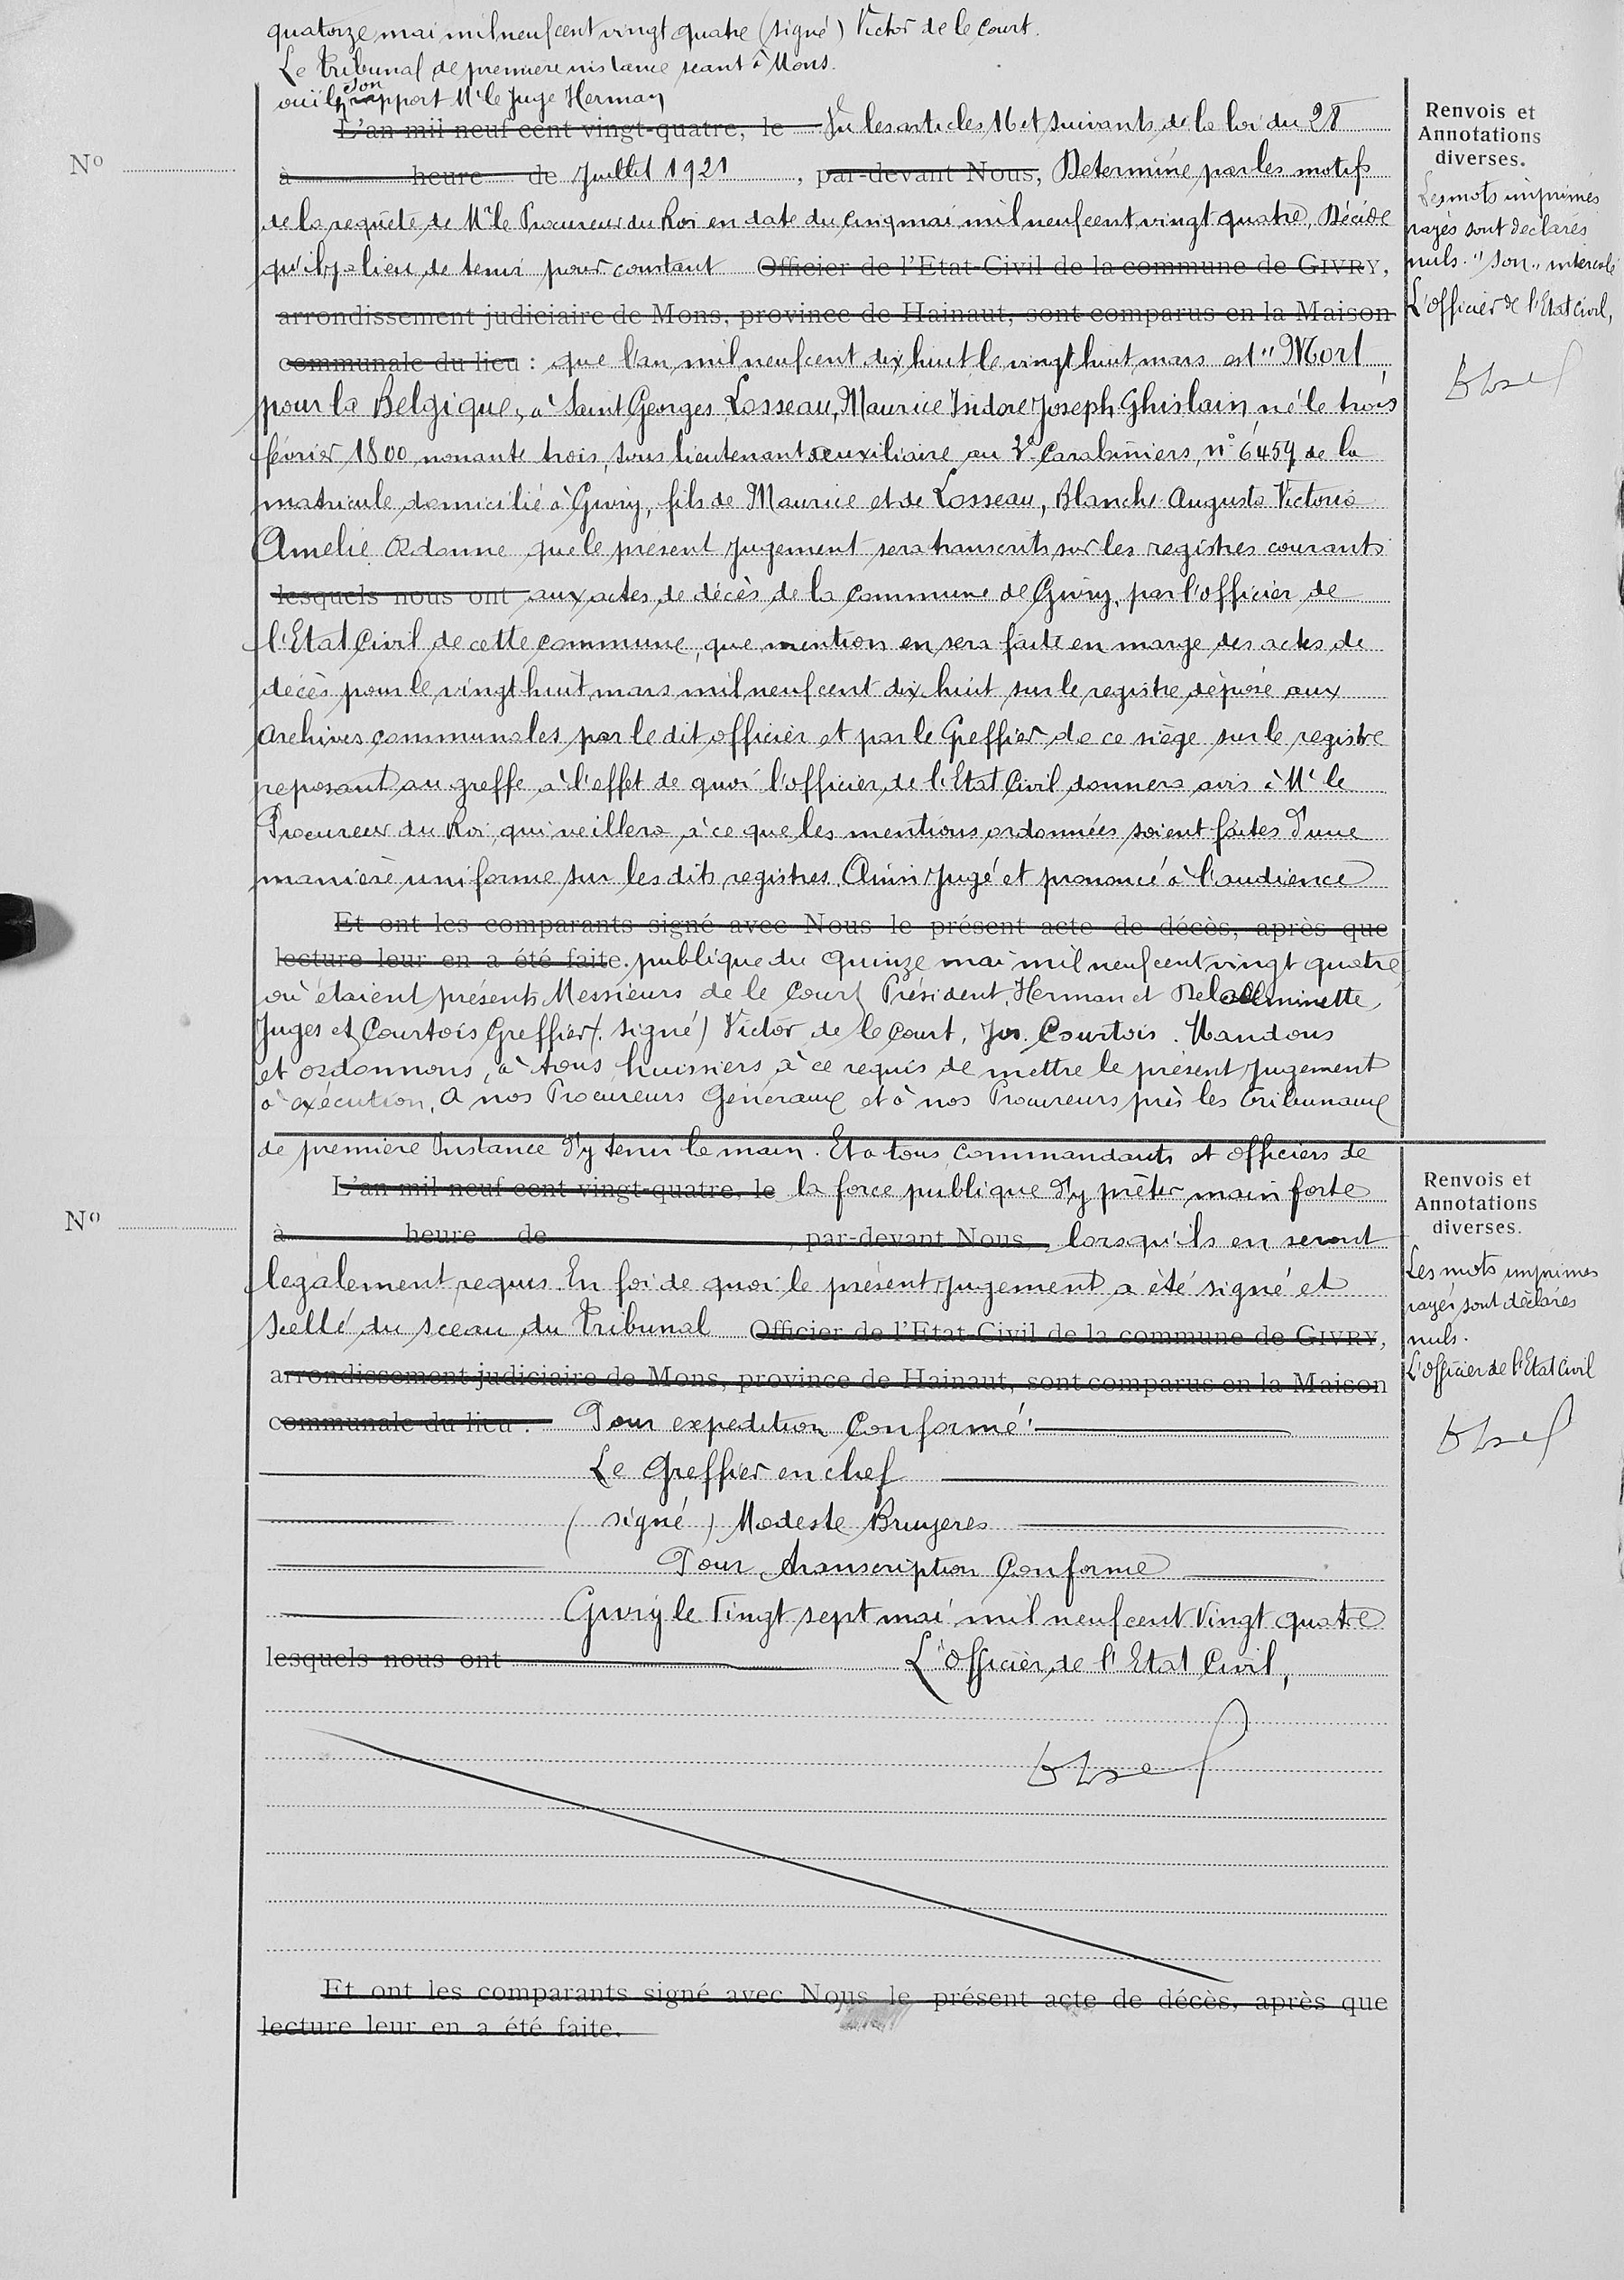 quatorze mai mil neuf cent vingt quatre (signé) Victor de le Court.
Le Tribunal de première instance séant à Mons.
ouï le son rapport Mr le Juge Herman
L'an mil neuf cent vingt-quatre, le Vu les articles 16 et suivants de la loi du 28
Renvois et
Annotations
diverses.
No
à heure de Juillet 1921, par-devant Nous, Détermine par les motifs
de la requête de Mr le Procureur du Roi en date du cinq mai mil neuf cent vingt quatre, Décide
qu'il y a lieu de tenir pour constant Officier de l'Etat-Civil de la commune de GIVRY,
arrondissement judiciaire de Mons, province de Hainaut, sont comparus en la Maison
communale du lieu : que l'an mil neuf cent dix huit le vingt huit mars est "Mort
pour la Belgique, à Saint Georges Losseau, Maurice Isidore Joseph Ghislain né le trois
février 1800 nonante trois, sous lieutenant auxiliaire au 2e Carabiniers, n° 6459 de la
matricule domicilié à Givry, fils de Maurice et de Losseau, Blanche Augusta Victoria
Amelie Ordonne que le présent jugement sera transcrits sur les registres courants
lesquels nous ont aux actes de décès de la Commune de Givry, par l'officier de
l'Etat Civil de cette commune, que mention en sera faite en marge des actes de
décès pour le vingt huit mars mil neuf cent dix huit sur le registre déposé aux
archives communales par le dit officier et par le Greffier de ce siège sur le registre
reposant au greffe à l'effet de quoi l'officier de l'Etat Civil donnera avis à Mr le
Procureur du Roi, qui veillera à ce que les mentions ordonnées soient faites d'une
manière uniforme sur les dits registres. Ainsi jugé et prononcé à l'audience
Et ont les comparants signé avec Nous le présent acte de décès, après que
lecture leur en a été faite. publique du quinze mai mil neuf cent vingt quatre
où étaient présents Messieurs de le Court Président, Herman et
Juges et Courtois Greffier (signé) Victor de le Court, Jos. Courtois. Mandons
et ordonnons, à tous huissiers à ce requis de mettre le présent jugement
à exécution. A nos Procureurs Généraux et à nos Procureurs près les tribunaux
Les mots imprimés
rayés sont déclarés
nuls. "son" intercalé
L'officier de l'Etat Civil,
de première Instance d'y tenir la main. Et à tous commandants et officiers de
L'an mil neuf cent vingt-quatre, le la force publique d'y prêter main forte
No
à heure de , par-devant Nous, lorsqu'ils en seront
légalement requis. En foi de quoi le présent jugement a été signé et
scellé du sceau du Tribunal Officier de l'Etat-Civil de la commune de GIVRY,
arrondissement judiciaire de Mons, province de Hainaut, sont comparus en la Maison
communale du lieu : Pour expedition Conforme :
Renvois et
Annotations
diverses.
Les mots imprimés
rayés sont déclarés
nuls.
L'Officier de l'Etat Civil
Le Greffier en chef
(signé) Modeste Bruyeres
Pour transcription Conforme
Givry le Vingt sept mai mil neuf cent vingt quatre
lesquels nous ont L'Officier de l'Etat Civil,
Et ont les comparants signé avec Nous le présent acte de décès, après que
lecture leur en a été faite.